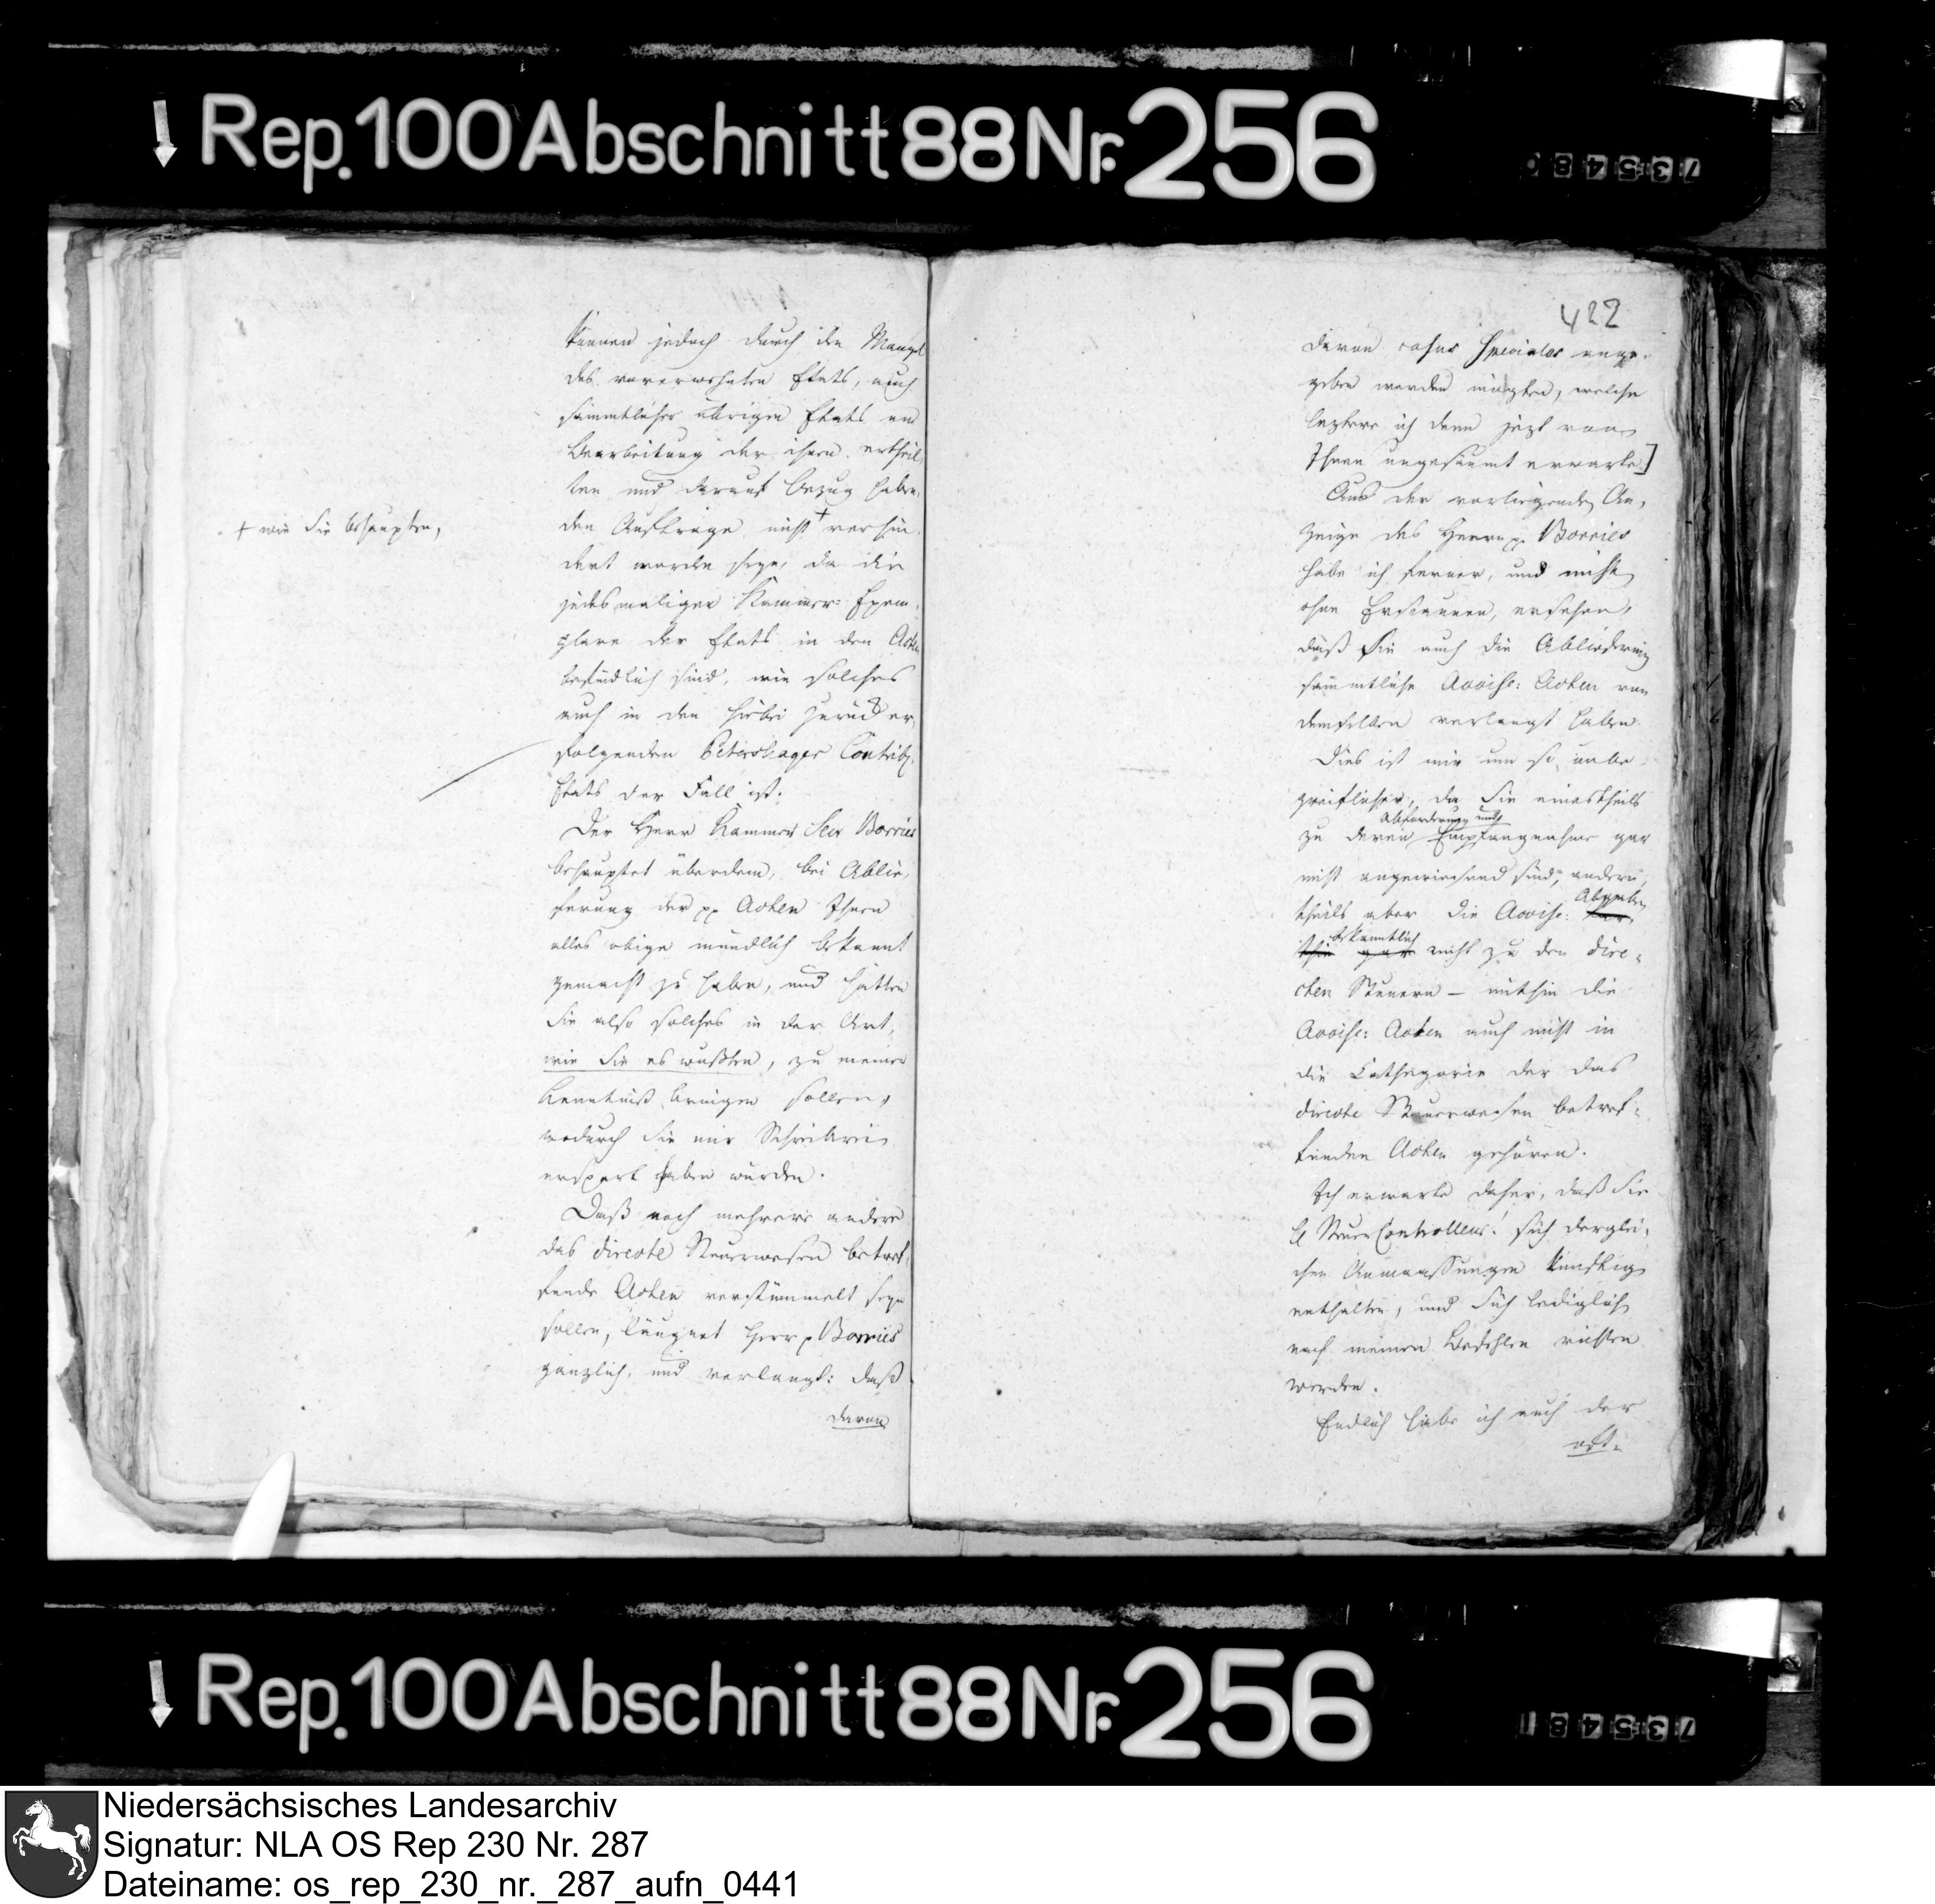 Rep. 100 Abschnitt 88 Nr. 256
735480
können jedoch durch den Mangel
des vorerwehnten Etats, auch
sämmtlicher übrigen Etats an
Bearbeitung der ihnen ertheil-
ten und darauf Bezug haben-
den Aufträge nicht + verhin-
dert worden seyn, da die
jedesmaligen Kammer-Exem-
plare der Etats in den Acten
befindlich sind, wie solches
auch in den hiebei zurück er-
folgenden Petershager Contrib.
Etats der Fall ist.
+ wie Sie behaupten,
Der Herr Kammer Secr Borries
behauptet überdem, bei Ablie-
ferung der pp Acten Ihnen
alles obige mündlich bekannt
gemacht zu haben, und hätten
Sie also solches in der Art,
wie Sie es wußten, zu meiner
Kenntniß bringen sollen,
wodurch Sie mir Schreiberei
erspart haben würden.
Daß noch mehrere andere
das directe Steuerwesen betref-
fende Acten verstümmelt seyn
sollen, läugnet Herr p Borries
gänzlich, und verlangt: daß
davon
422
davon casus speciales ange-
geben werden mögten, welche
leztere ich denn jezt von
Ihnen ungesäumt erwarte]
Aus der vorliegenden An-
zeige des Herrn p. Borries
habe ich ferner, und nicht
ohne Erstaunen, ersehen,
daß Sie auch die Ablieferung
sämmtliche Accise: Acten von
demselben verlangt haben.
Dies ist mir um so unbe-
greiflicher, da Sie einestheils
Abforderung und
zu deren Empfangnahme gar
nicht angewiesen sind, andern-
theils aber die Accise: Abgaben
bekanntlich
gar nicht zu den dire-
cten Steuern – mithin die
Accise: Acten auch nicht in
die Cathegorie der das
directe Steuerwesen betref-
fenden Acten gehören.
Ich erwarte daher, daß Sie
Steuer Controlleur! sich derglei-
chen Anmaassungen künftig
enthalten, und Sich lediglich
nach meinen Befehlen richten
werden.
Endlich habe ich auch der
Rep. 100 Abschnitt 88 Nr. 256
735481
Niedersächsisches Landesarchiv
Signatur: NLA OS Rep 230 Nr. 287
Dateiname: os_rep_230_nr._287_aufn_0441